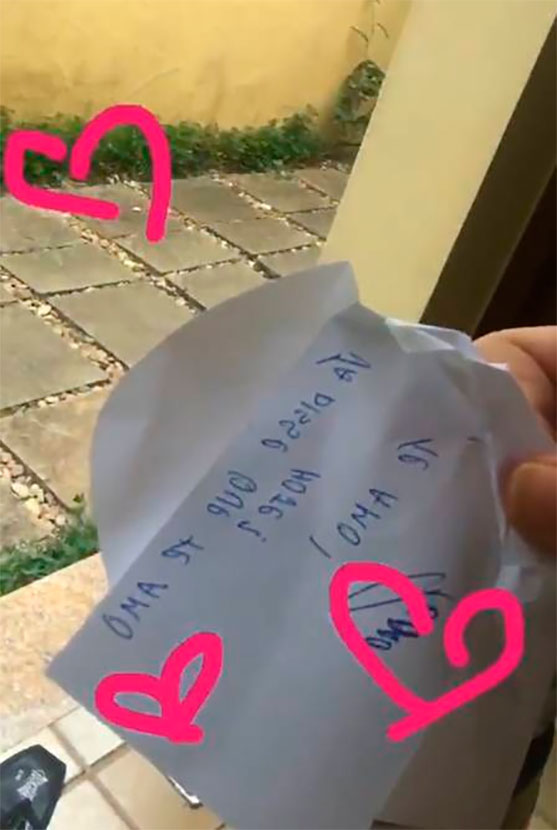 JÁ DISSe QUe Te AMO
HOJe?
Te AMO!